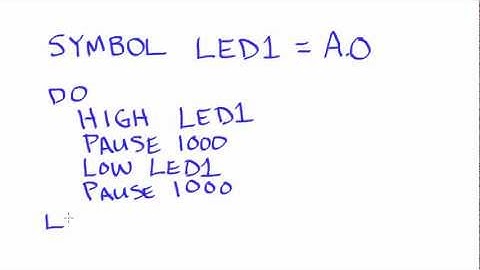 SYMBOL LED1 = A.0
DO
HIGH LED1
PAUSE 1000
LOW LED1
PAUSE 1000
L